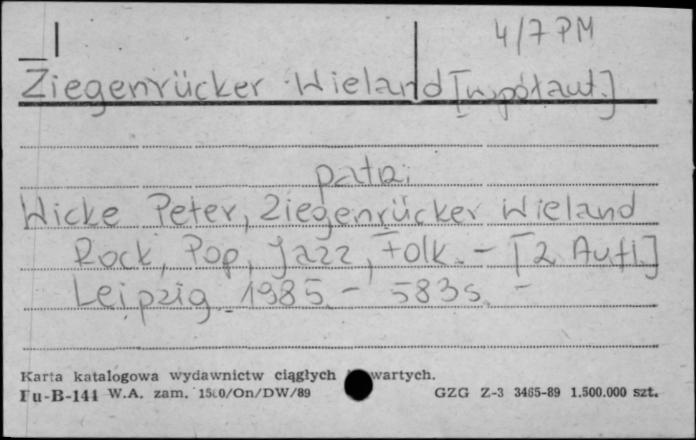 4/7 PM
Ziegenrücker Wieland [współaut.]
patrz:
Wicke Peter, Ziegenrücker Wieland
Rock, Pop, Jazz, Folk. - [2 Aufl.]
Leipzig 1985. - 583 s. -
Karta katalogowa wydawnictw ciągłych wartych.
Pu-B-141 W.A. zam. 1500/On/DW/89 GZG Z-3 3465-89 1.500.000 szt.